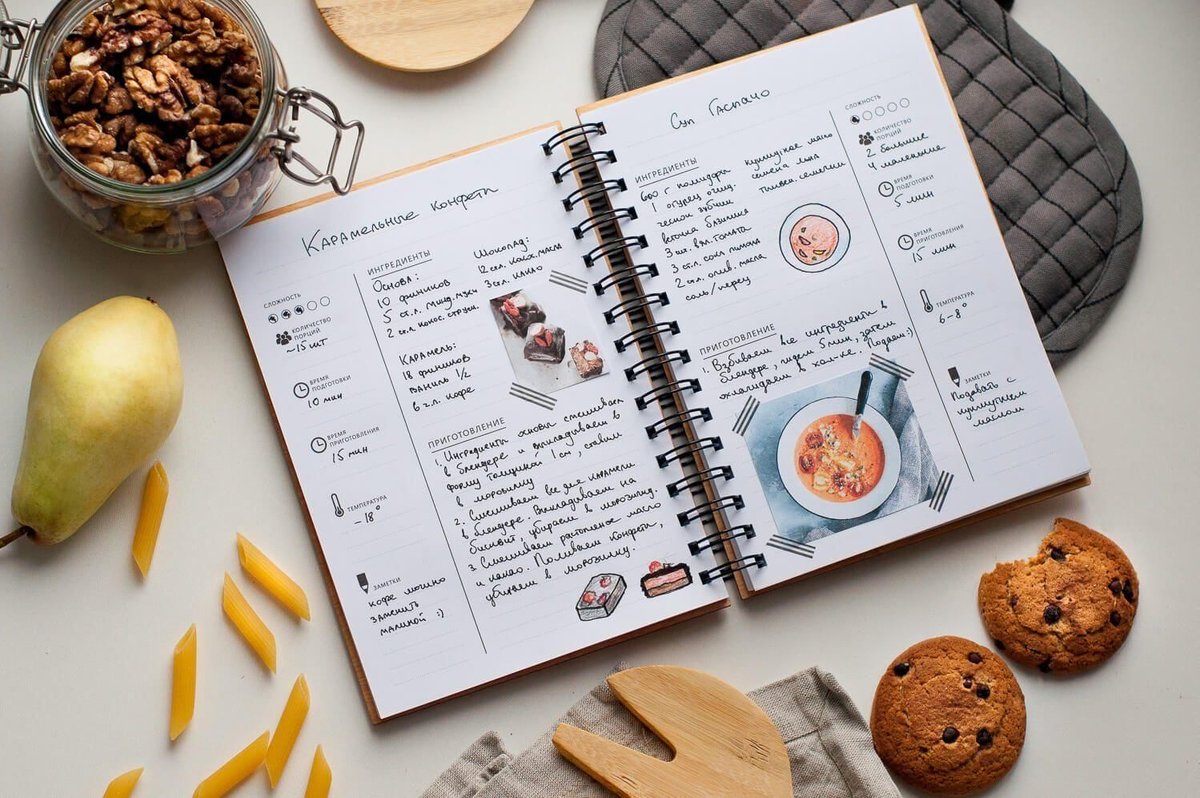 Карамельные конфеты
СЛОЖНОСТЬ
КОЛИЧЕСТВО
ПОРЦИЙ
~15 шт
ВРЕМЯ
ПОДГОТОВКИ
10 мин
ВРЕМЯ
ПРИГОТОВЛЕНИЯ
15 мин
ТЕМПЕРАТУРА
-18°
ЗАМЕТКИ
кофе можно
заменить
малиной :)
ИНГРЕДИЕНТЫ
Основа:
10 фиников
5 ст.л. минд. муки
2 ст.л. кокос. стружки
Карамель:
18 фиников
ваниль 1/2
6 ч.л. кофе
Шоколад:
12 ст.л. кокос. масла
3 ст.л. какао
ПРИГОТОВЛЕНИЕ
1. Ингредиенты основы смешиваем
в блендере и выкладываем в
форму толщиной 1 см, ставим
в морозилку
2. Смешиваем все для карамели
в блендере. Выкладываем на
бисквит, убираем в морозилку.
3. Смешиваем растопленое масло
и какао. Поливаем конфеты,
убираем в морозилку.
Суп Гаспачо
ИНГРЕДИЕНТЫ
600 г помидоры
1 огурец очищ.
чеснок зубчик
веточка базилика
3 шт. вял. томата
3 ст.л. сока лимона
2 ст.л. олив. масла
соль/перец
кунжутное масло
тыквен. семечки
ПРИГОТОВЛЕНИЕ
1. Взбиваем все ингредиенты в
блендере, пюрем 5 мин, затем
охлаждаем в хол-ке. Подаем :)
СЛОЖНОСТЬ
КОЛИЧЕСТВО
ПОРЦИЙ
2 большие
4 маленькие
ВРЕМЯ
ПОДГОТОВКИ
5 мин
ВРЕМЯ
ПРИГОТОВЛЕНИЯ
15 мин
ТЕМПЕРАТУРА
6-8°
ЗАМЕТКИ
Подавать с
кунжутным
маслом